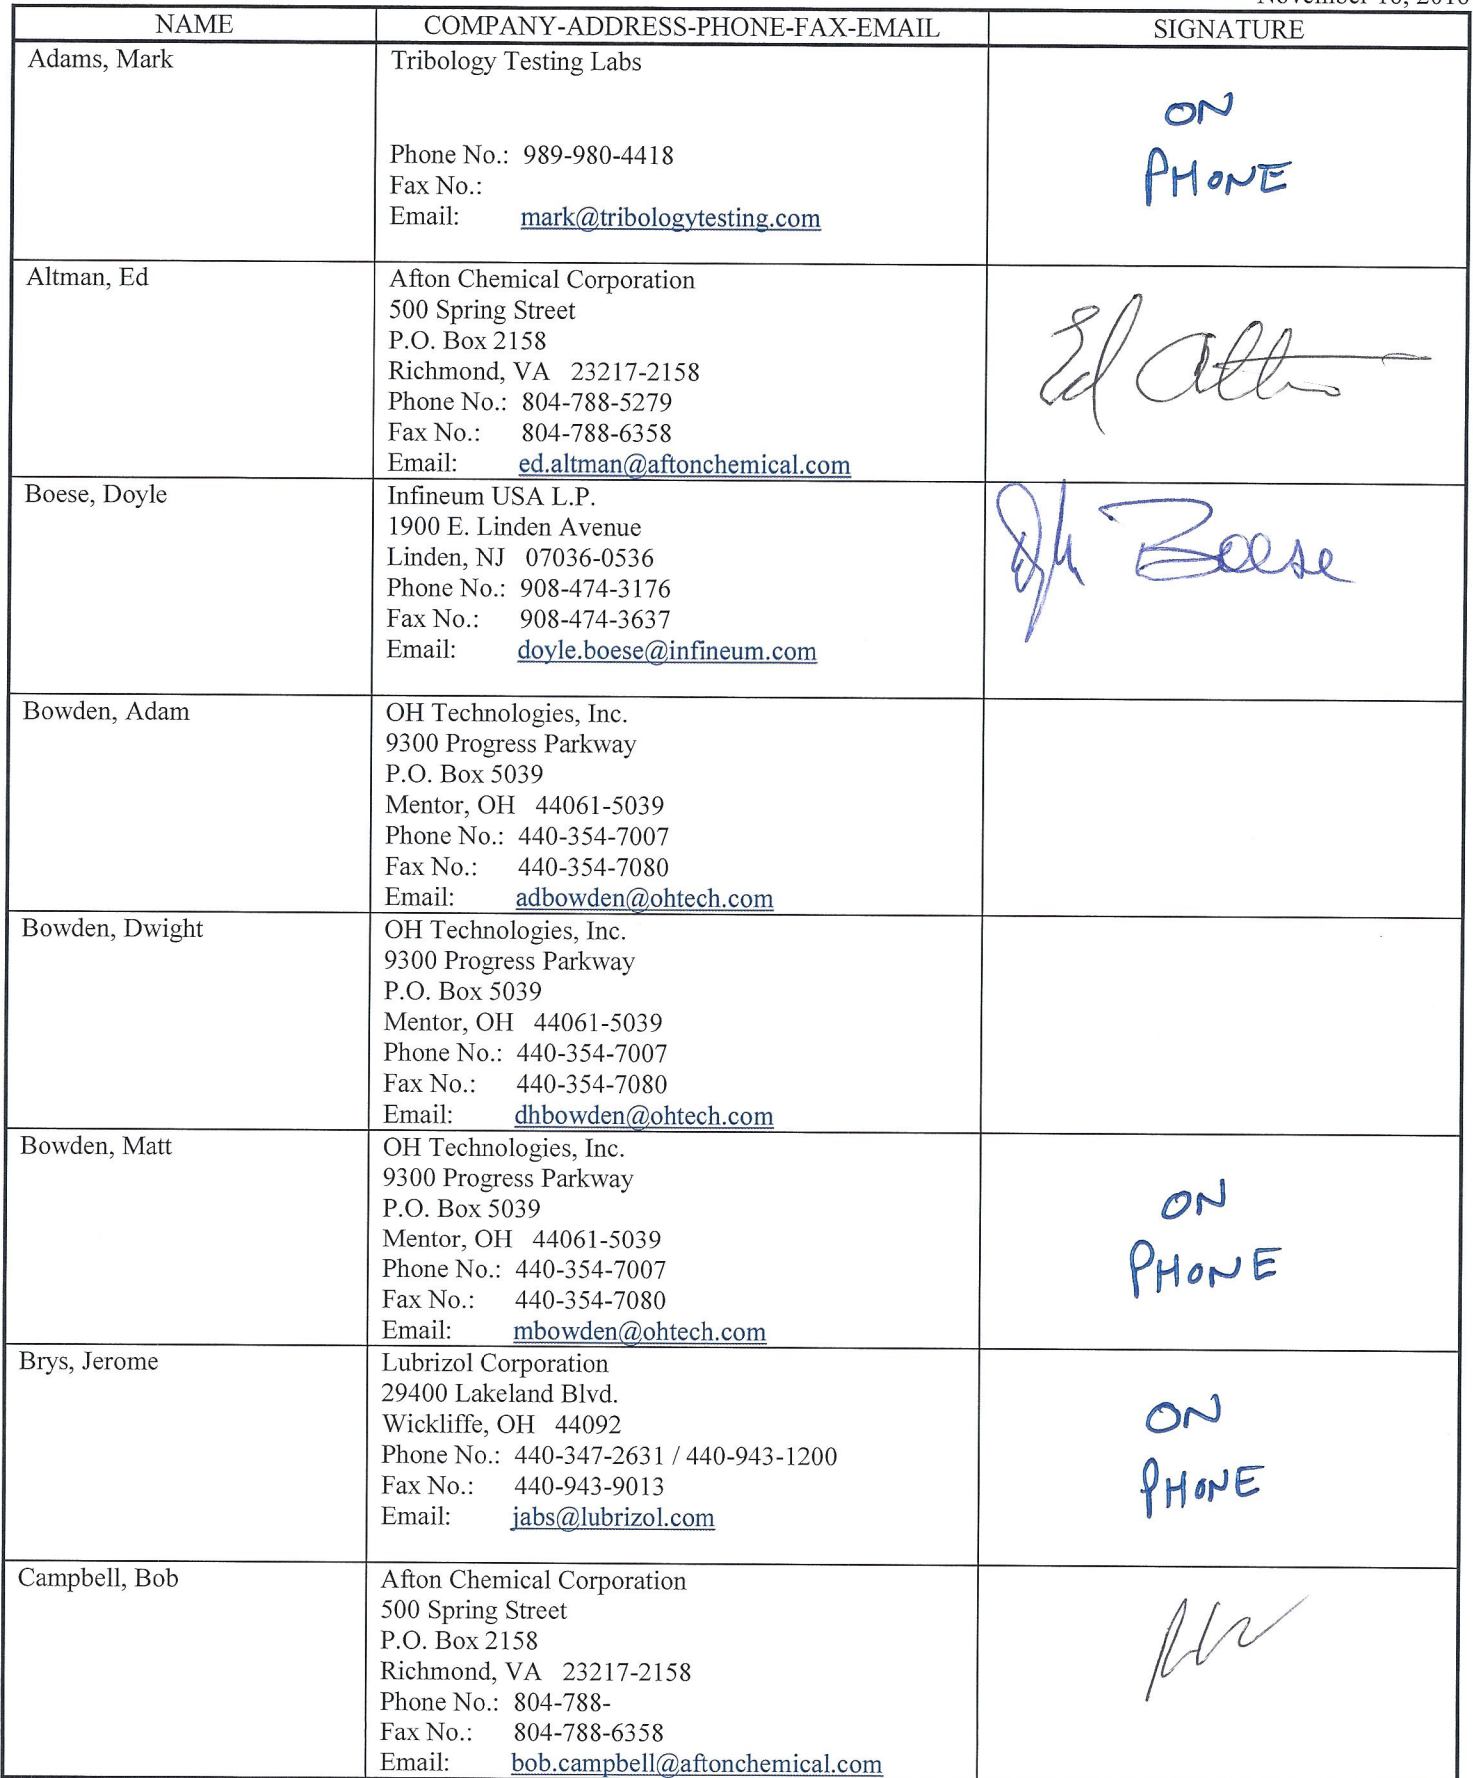 NAME
COMPANY-ADDRESS-PHONE-FAX-EMAIL
SIGNATURE
Adams, Mark
Tribology Testing Labs
Phone No.: 989-980-4418
Fax No.:
Email: mark@tribologytesting.com
ON
PHONE
Altman, Ed
Afton Chemical Corporation
500 Spring Street
P.O. Box 2158
Richmond, VA 23217-2158
Phone No.: 804-788-5279
Fax No.: 804-788-6358
Email: ed.altman@aftonchemical.com
Ed
Boese, Doyle
Infineum USA L.P.
1900 E. Linden Avenue
Linden, NJ 07036-0536
Phone No.: 908-474-3176
Fax No.: 908-474-3637
Email: doyle.boese@infineum.com
Boese
Bowden, Adam
OH Technologies, Inc.
9300 Progress Parkway
P.O. Box 5039
Mentor, OH 44061-5039
Phone No.: 440-354-7007
Fax No.: 440-354-7080
Email: adbowden@ohtech.com
Bowden, Dwight
OH Technologies, Inc.
9300 Progress Parkway
P.O. Box 5039
Mentor, OH 44061-5039
Phone No.: 440-354-7007
Fax No.: 440-354-7080
Email: dhbowden@ohtech.com
Bowden, Matt
OH Technologies, Inc.
9300 Progress Parkway
P.O. Box 5039
Mentor, OH 44061-5039
Phone No.: 440-354-7007
Fax No.: 440-354-7080
Email: mbowden@ohtech.com
ON
PHONE
Brys, Jerome
Lubrizol Corporation
29400 Lakeland Blvd.
Wickliffe, OH 44092
Phone No.: 440-347-2631 / 440-943-1200
Fax No.: 440-943-9013
Email: jabs@lubrizol.com
ON
PHONE
Campbell, Bob
Afton Chemical Corporation
500 Spring Street
P.O. Box 2158
Richmond, VA 23217-2158
Phone No.: 804-788-
Fax No.: 804-788-6358
Email: bob.campbell@aftonchemical.com